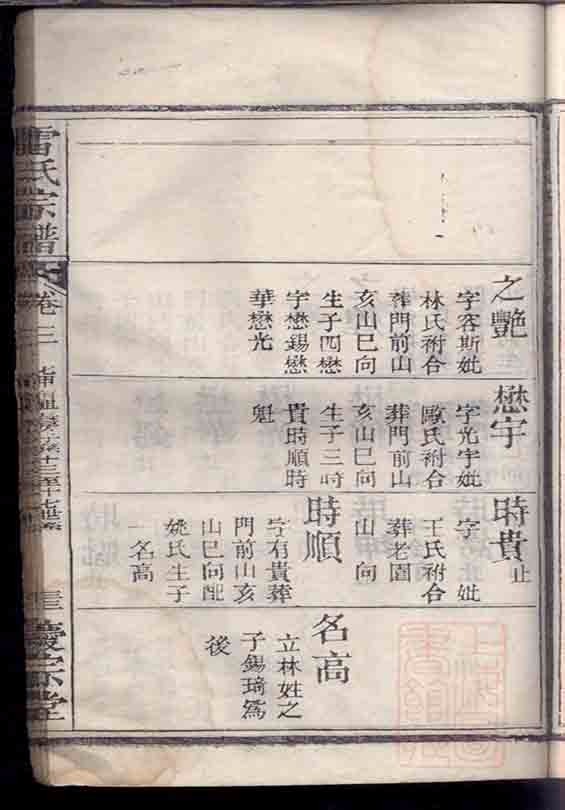 之艷
字容斯妣
林氏祔合
葬門前山
亥山巳向
生子四懋
字懋錫懋
華懋光
懋宇
字光宇妣
歐氏祔合
葬門前山
亥山巳向
生子三時
貴時順時
魁
時貴止
字 妣
王氏祔合
葬老園
山 向
時順
字有貴葬
門前山亥
山巳向配
姚氏生子
一名高
名高
立林姓之
子錫琦為
後
雷氏宗譜
卷三